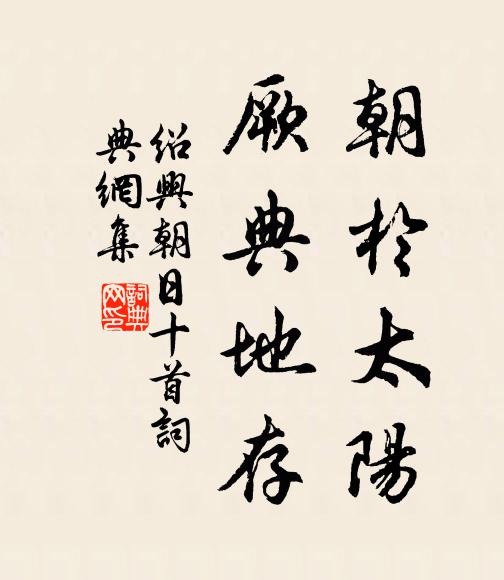 朝於太陽
厥典地存
紹興朝日十首詞
典網集
詞典
網印